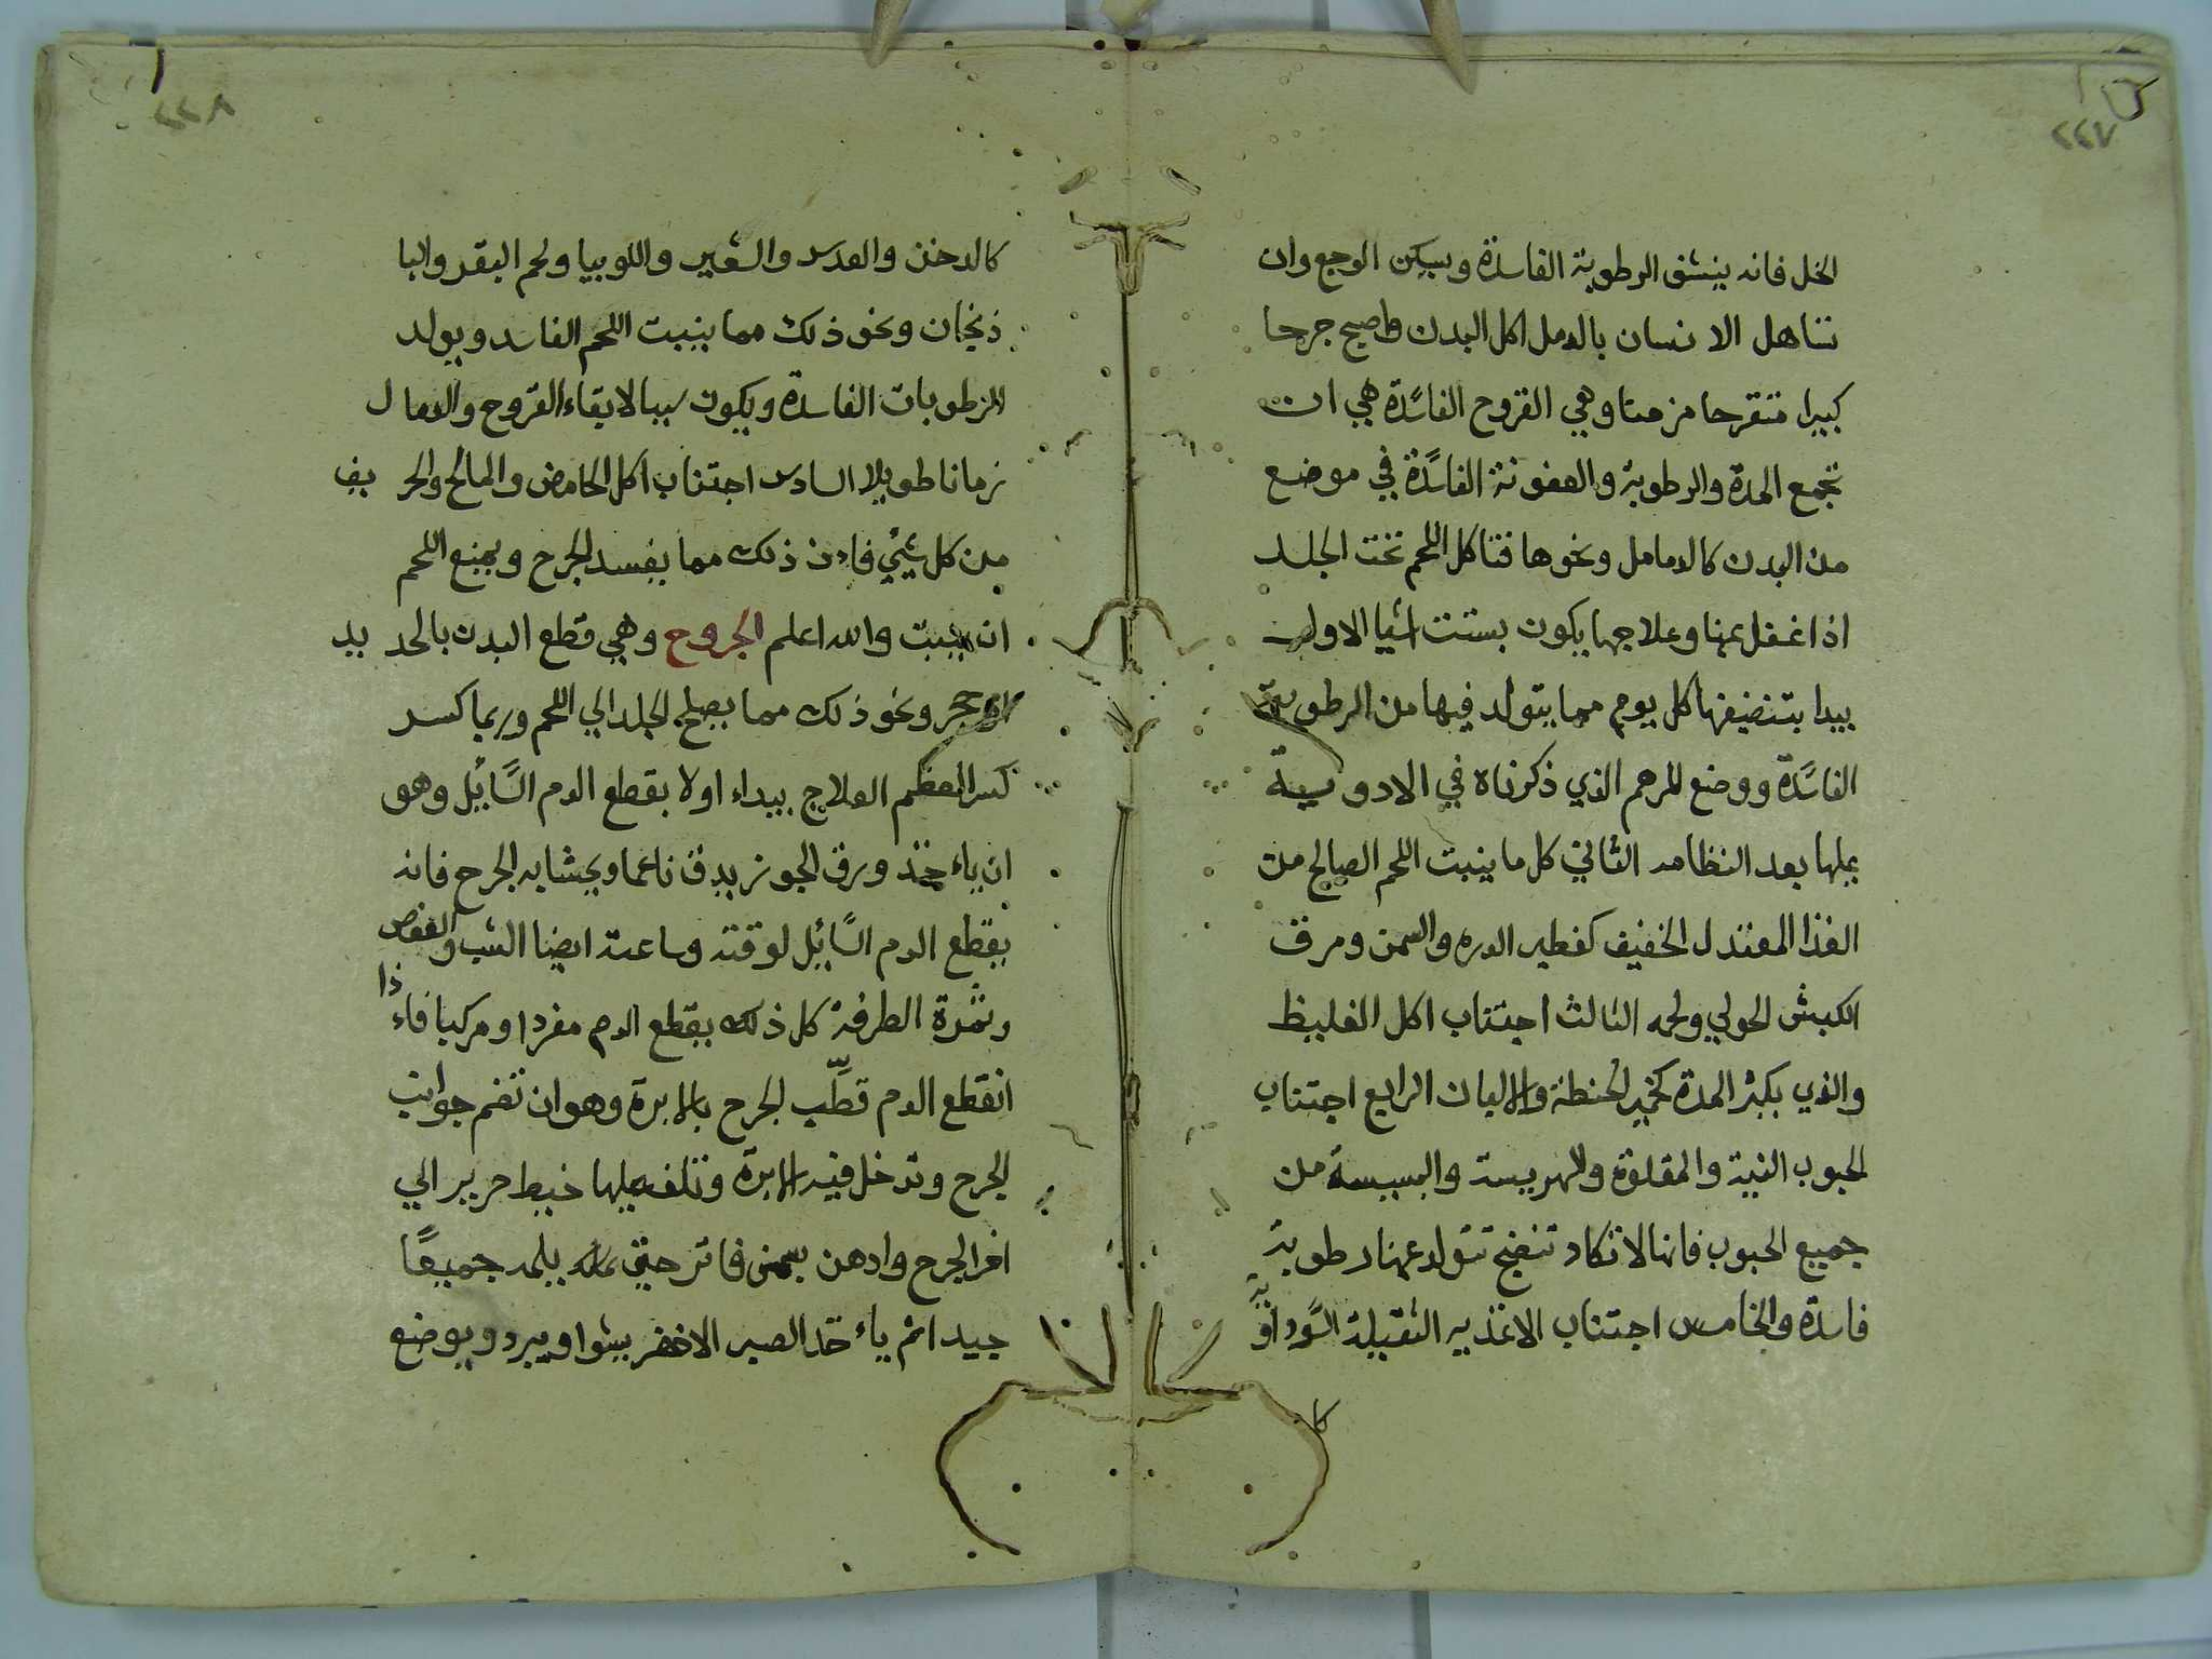 ٢٢٧
الخل فانه ينشف الرطوبة الفاسدة ويسكن الوجع وان
تساهل الانسان بالدمل اكل البدن واصبح جرحا
كبيرا متقرحا مزمنا وهي القروح الفاسدة هي ان
تجمع المدة والرطوبة والعفونة الفاسدة في موضع
من البدن كالدمامل ونحوها فتاكل اللحم تحت الجلد
اذا غفل عنها وعلاجها يكون بستت اشيا الاول
يبدا بتنضيفها كل يوم مما يتولد فيها من الرطوبة
الفاسدة ووضع المرهم الذي ذكرناه في الادوية
عليها بعد النظامه الثاني كل ما ينبت اللحم الصالح من
الغذا المعتدل الخفيف كفطير الدره والسمن ومرق
الكبش الحولي ولحمه الثالث اجتناب اكل الغليظ
والذي يكثر المدة كخمير الحنطة والالبان الرابع اجتناب
الحبوب النية والمقلوة والهريسة والبسيسة من
جميع الحبوب فانها لا تكاد تنضج تتولد عنها رطوبة
فاسدة والخامس اجتناب الاغذيه الثقيلة السوداوية
كا
٢٢٨
كالدخن والعدس والشعير واللوبيا ولحم البقر والبا
ذنجان ونحو ذلك مما ينبت اللحم الفاسد ويولد
الرطوبات الفاسدة ويكون سببا لابقاء القروح والدمال
زمانا طويلا السادس اجتناب اكل الحامض والمالح والحريف
من كل شيئ فاءن ذلك مما يفسد الجرح ويمنع اللحم
ان ينبت والله اعلم الجروح وهي قطع البدن بالحديد
او حجر ونحو ذلك مما يصلح الجلد الي اللحم وربما كسر
كسر العظم العلاج يبداء اولا بقطع الدم السائل وهو
ان ياءخذ ورق الجوز يدق ناعما ويحشا به الجرح فانه
يقطع الدم السائل لوقته وساعته ايضا الشب والعفص
وثمرة الطرفة كل ذلك يقطع الدم مفردا ومركبا فاءذا
انقطع الدم قطّب الجرح بالابرة وهو ان تضم جوانب
الجرح وتدخل فيه الابرة وتلف عليها خيط حرير الي
اخر الجرح وادهن بسمن فاتر حتى يلمه جميعًا
جيدا ثم ياءخذ الصبر الاخضر يشوا ويبرد ويوضع